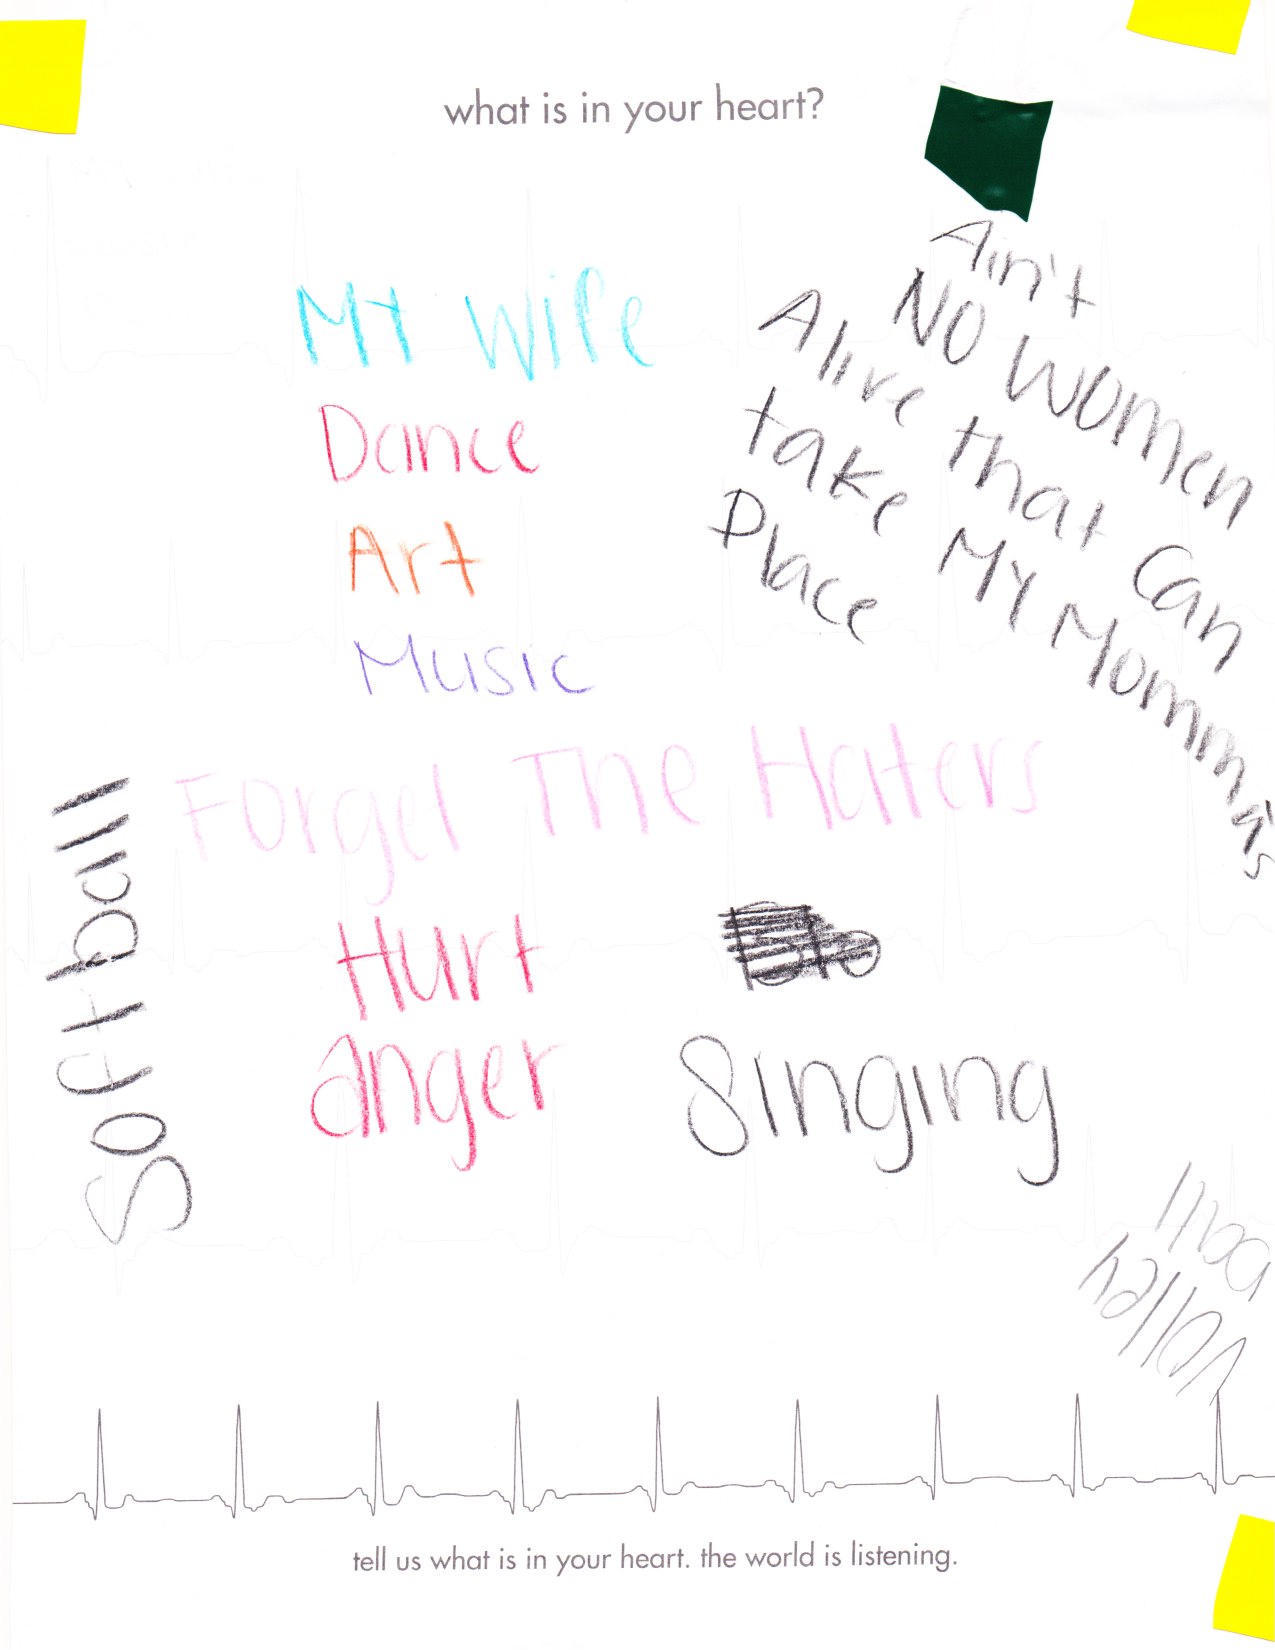 what is in your heart?
Ain't
NO Women
Alive that Can
take MY Mommas
Place
MY Wife
Dance
Art
Music
Forget The Haters
Softball
Hurt
anger
Singing
Volley
ball
tell us what is in your heart. the world is listening.